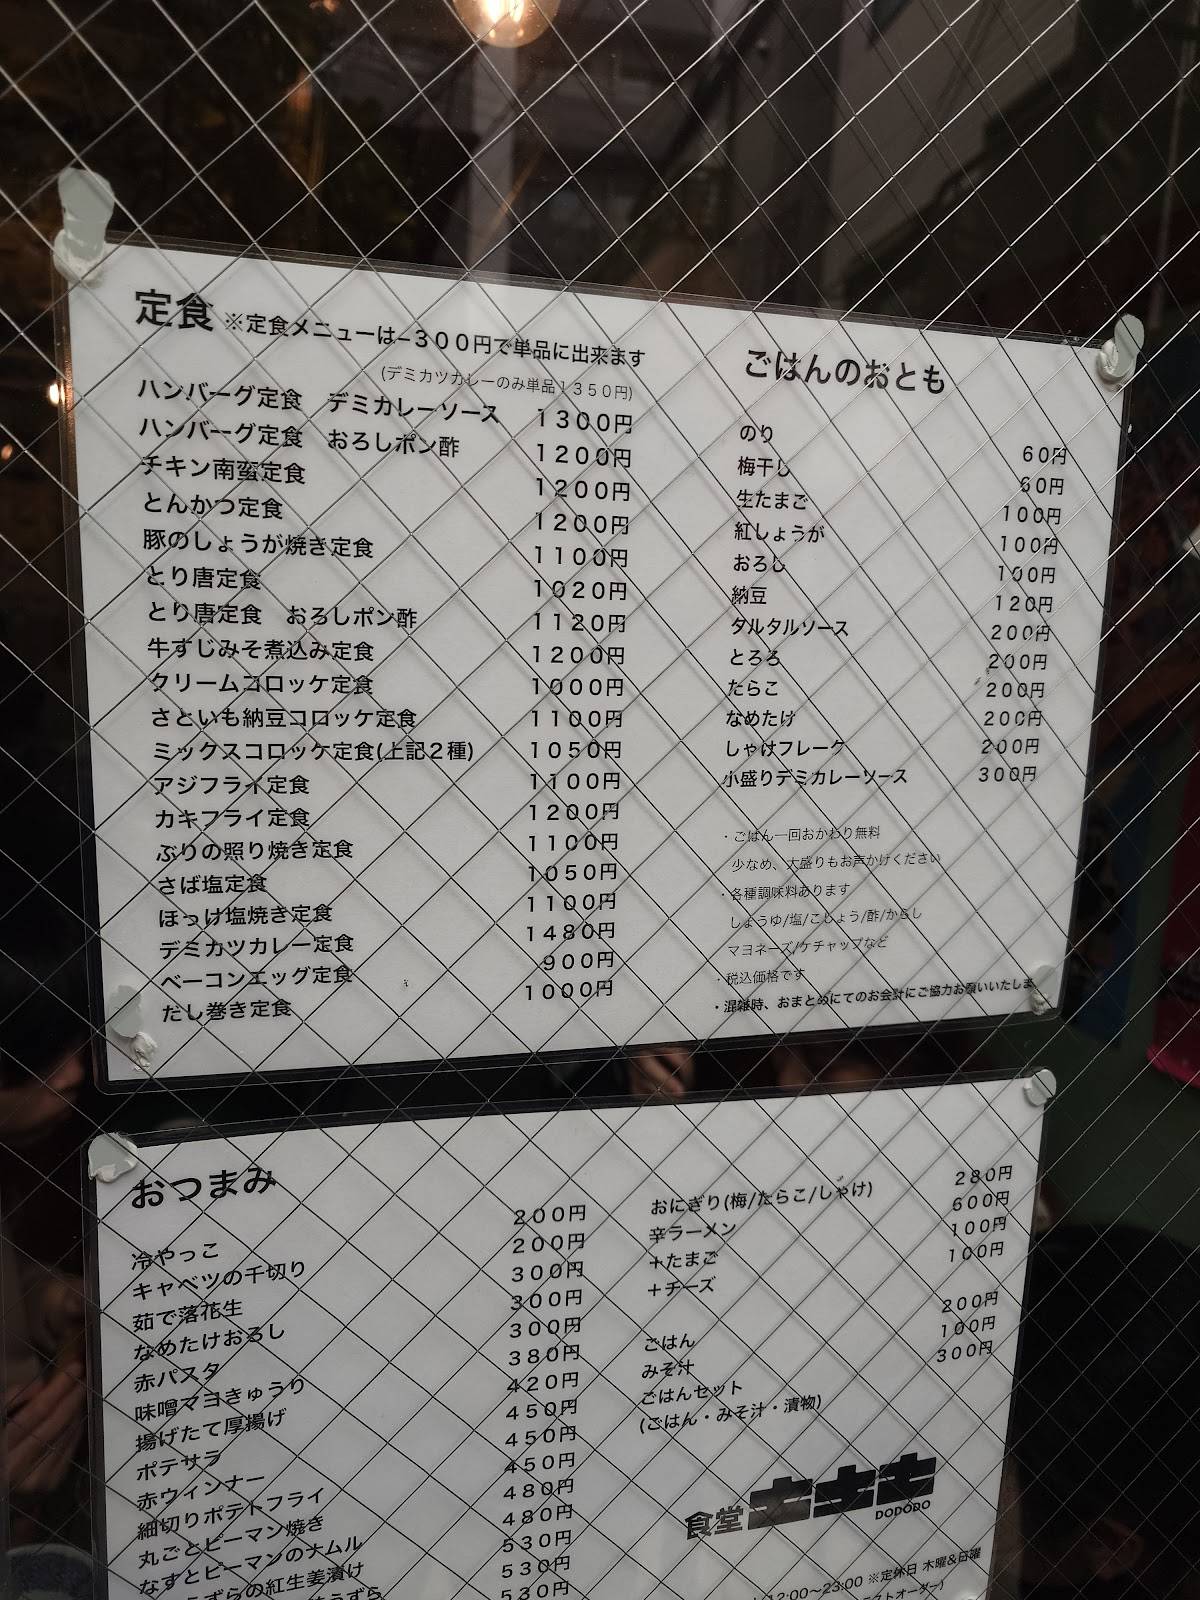 定食 ※定食メニューは−300円で単品に出来ます
(デミカツカレーのみ単品1350円)
ハンバーグ定食 デミカレーソース 1300円
ハンバーグ定食 おろしポン酢 1200円
チキン南蛮定食 1200円
とんかつ定食 1200円
豚のしょうが焼き定食 1100円
とり唐定食 1020円
とり唐定食 おろしポン酢 1120円
牛すじみそ煮込み定食 1200円
クリームコロッケ定食 1000円
さといも納豆コロッケ定食 1100円
ミックスコロッケ定食(上記2種) 1050円
アジフライ定食 1100円
カキフライ定食 1200円
ぶりの照り焼き定食 1100円
さば塩定食 1050円
ほっけ塩焼き定食 1100円
デミカツカレー定食 1480円
ベーコンエッグ定食 900円
だし巻き定食 1000円
ごはんのおとも
のり 60円
梅干し 60円
生たまご 100円
紅しょうが 100円
おろし 100円
納豆 120円
タルタルソース 200円
とろろ 200円
たらこ 200円
なめたけ 200円
しゃけフレーク 200円
小盛りデミカレーソース 300円
・ごはん一回おかわり無料
少なめ、大盛りもお声かけください
・各種調味料あります
しょうゆ/塩/こしょう/酢/からし
マヨネーズ/ケチャップなど
・税込価格です
・混雑時、おまとめにてのお会計にご協力お願いいたしま
おつまみ
冷やっこ 200円
キャベツの千切り 200円
茹で落花生 300円
なめたけおろし 300円
赤パスタ 300円
味噌マヨきゅうり 380円
揚げたて厚揚げ 420円
ポテサラ 450円
赤ウィンナー 450円
細切りポテトフライ 450円
丸ごとピーマン焼き 480円
なすとピーマンのナムル 480円
うずらの紅生姜漬け 530円
530円
530円
おにぎり(梅/たらこ/しゃけ) 280円
辛ラーメン 600円
+たまご 100円
+チーズ 100円
ごはん 200円
みそ汁 100円
ごはんセット 300円
(ごはん・みそ汁・漬物)
食堂
DODODO
12:00〜23:00 ※定休日 木曜&日曜
ストオーダー)